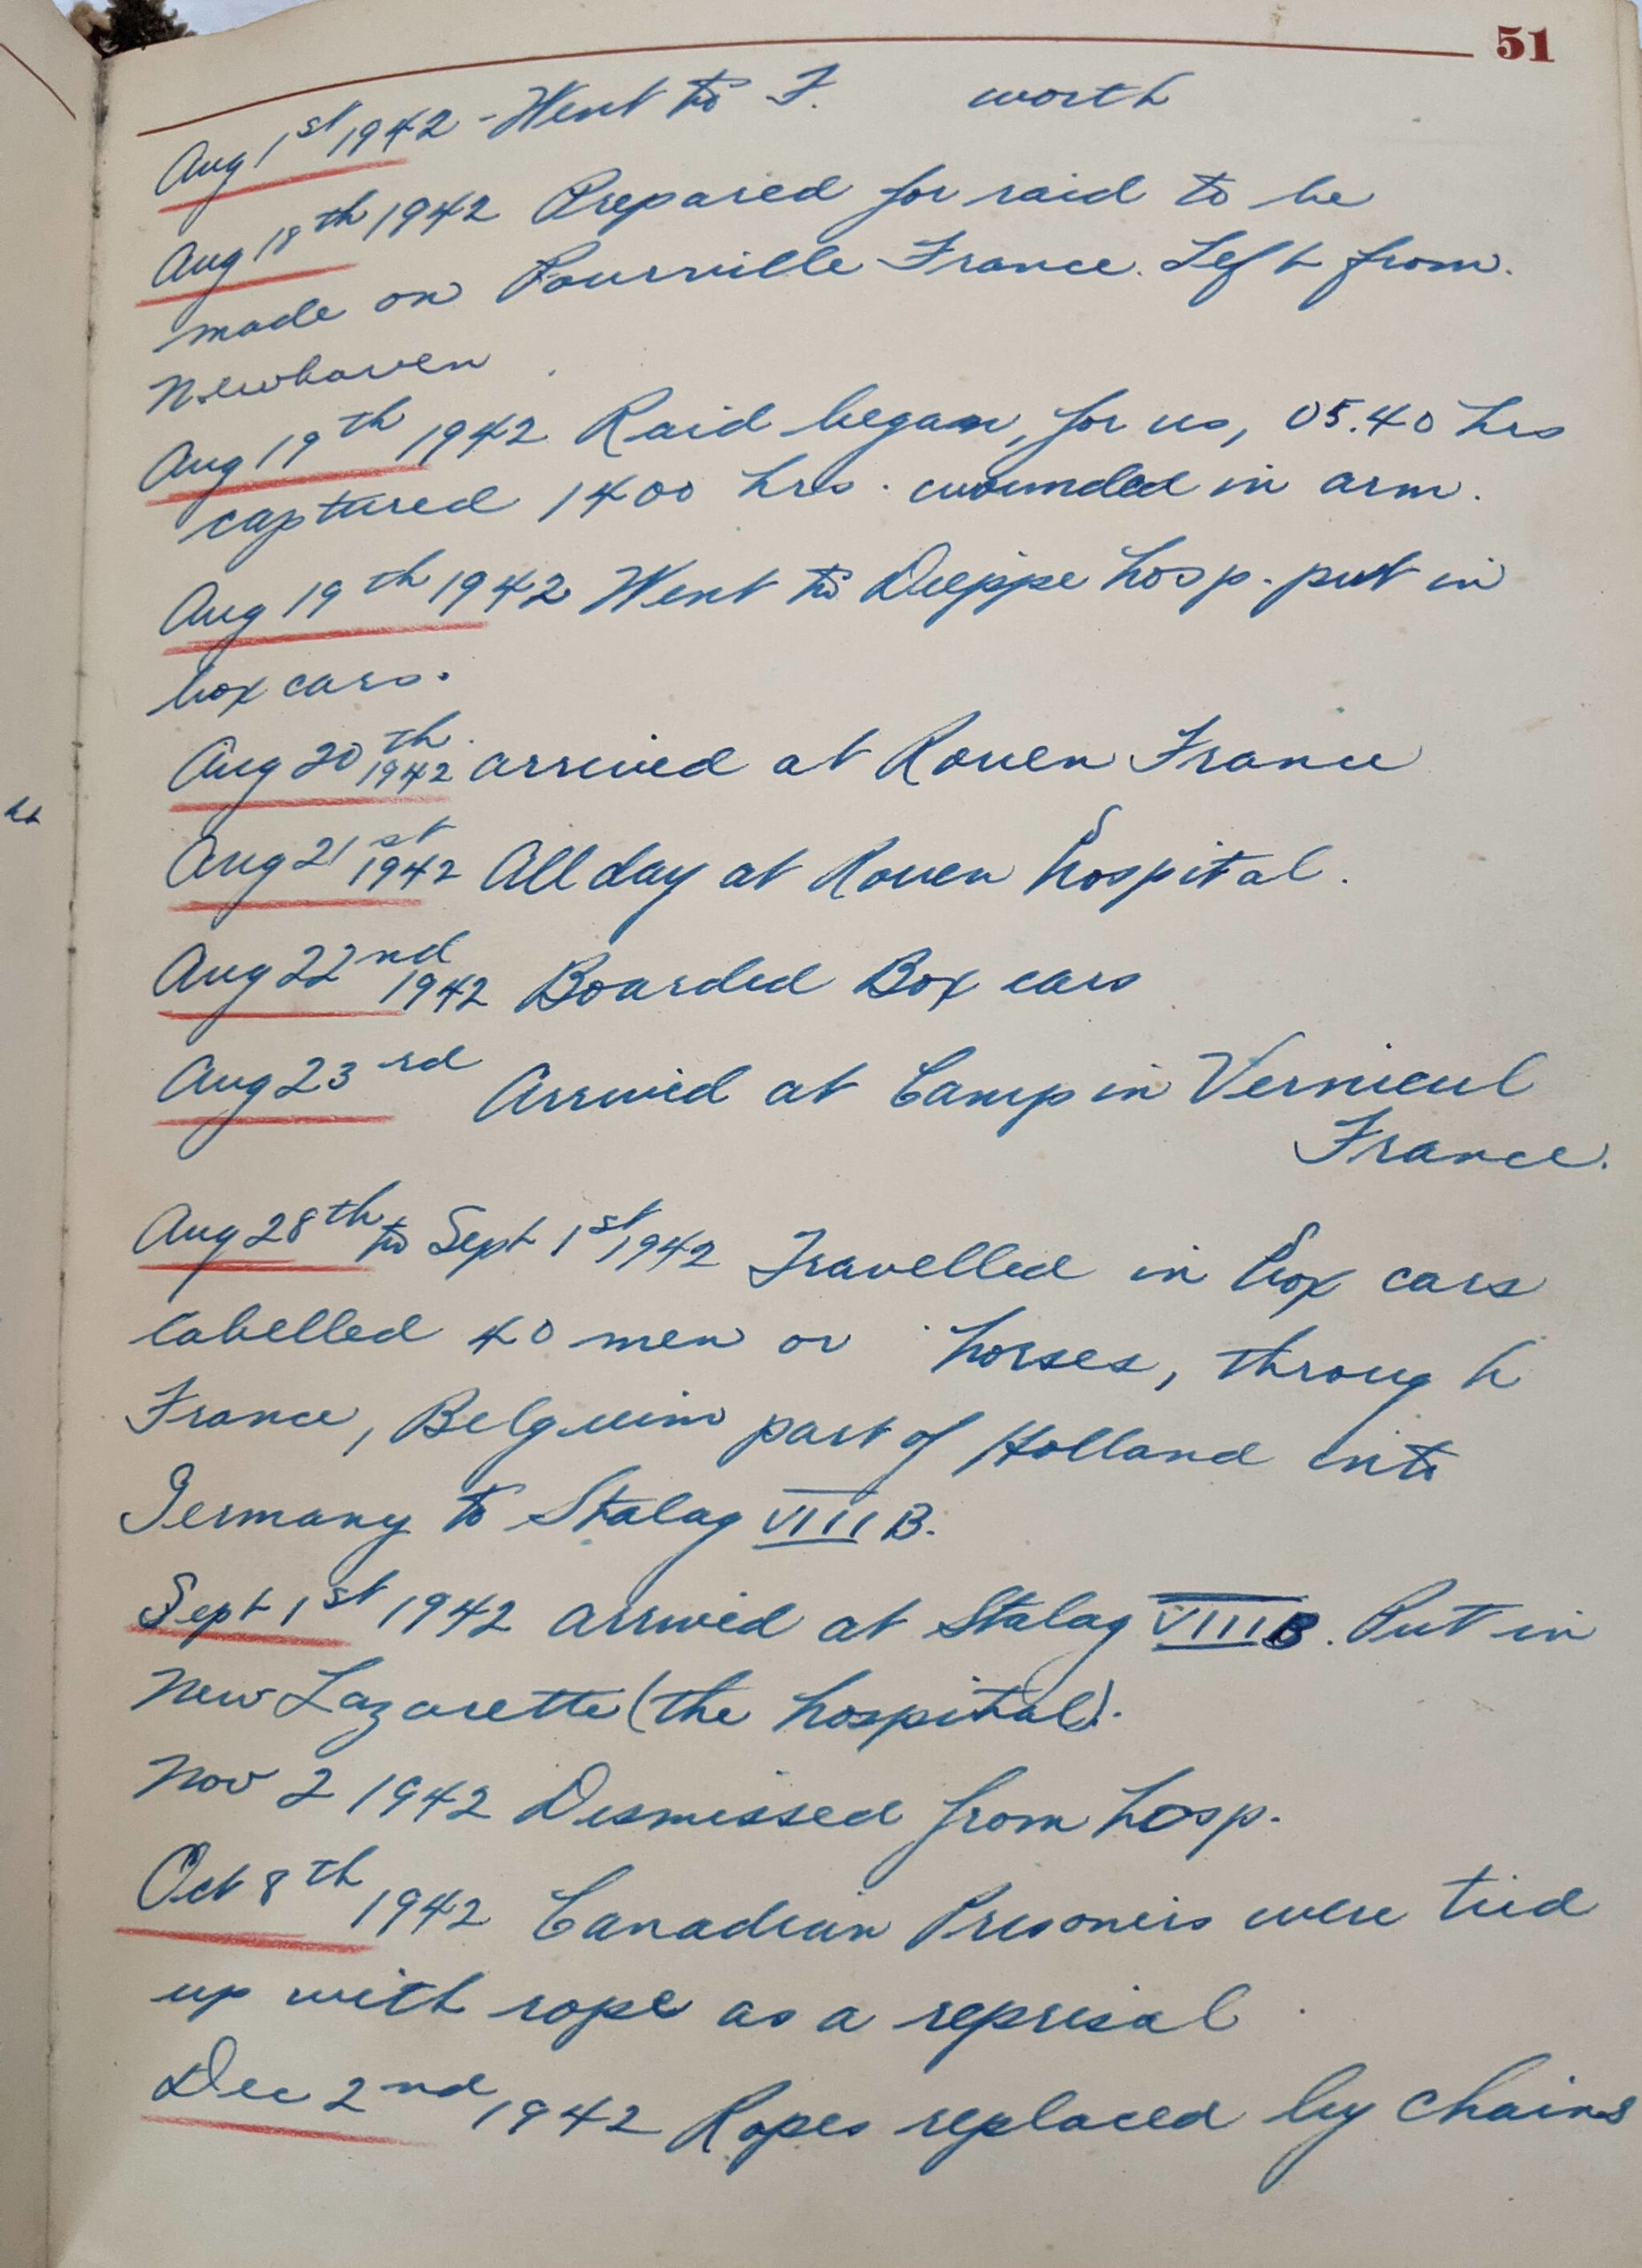 51
Aug 1st 1942 - Went to F. worth
Aug 18th 1942 Prepared for raid to be
made on Pourville France. Left from.
Newhaven.
Aug 19th 1942 Raid began, for us, 05.40 hrs
captured 1400 hrs. wounded in arm.
Aug 19th 1942 Went to Dieppe hosp. put in
box cars.
Aug 20th 1942 arrived at Rouen France
Aug 21st 1942 All day at Rouen hospital.
Aug 22nd 1942 Boarded Box cars
Aug 23rd Arrived at Camp in
France.
Aug 28th to Sept 1st 1942 Travelled in box cars
labelled 40 men or horses, through
France, Belguim part of Holland into
Germany to Stalag VIIIB.
Sept 1st 1942 arrived at Stalag VIIIB. Put in
New Lazarette (the hospital).
Nov 2 1942 Dismissed from hosp.
Oct 8th 1942 Canadian Prisoners were tied
up with rope as a reprisal
Dec 2nd 1942 Ropes replaced by chains